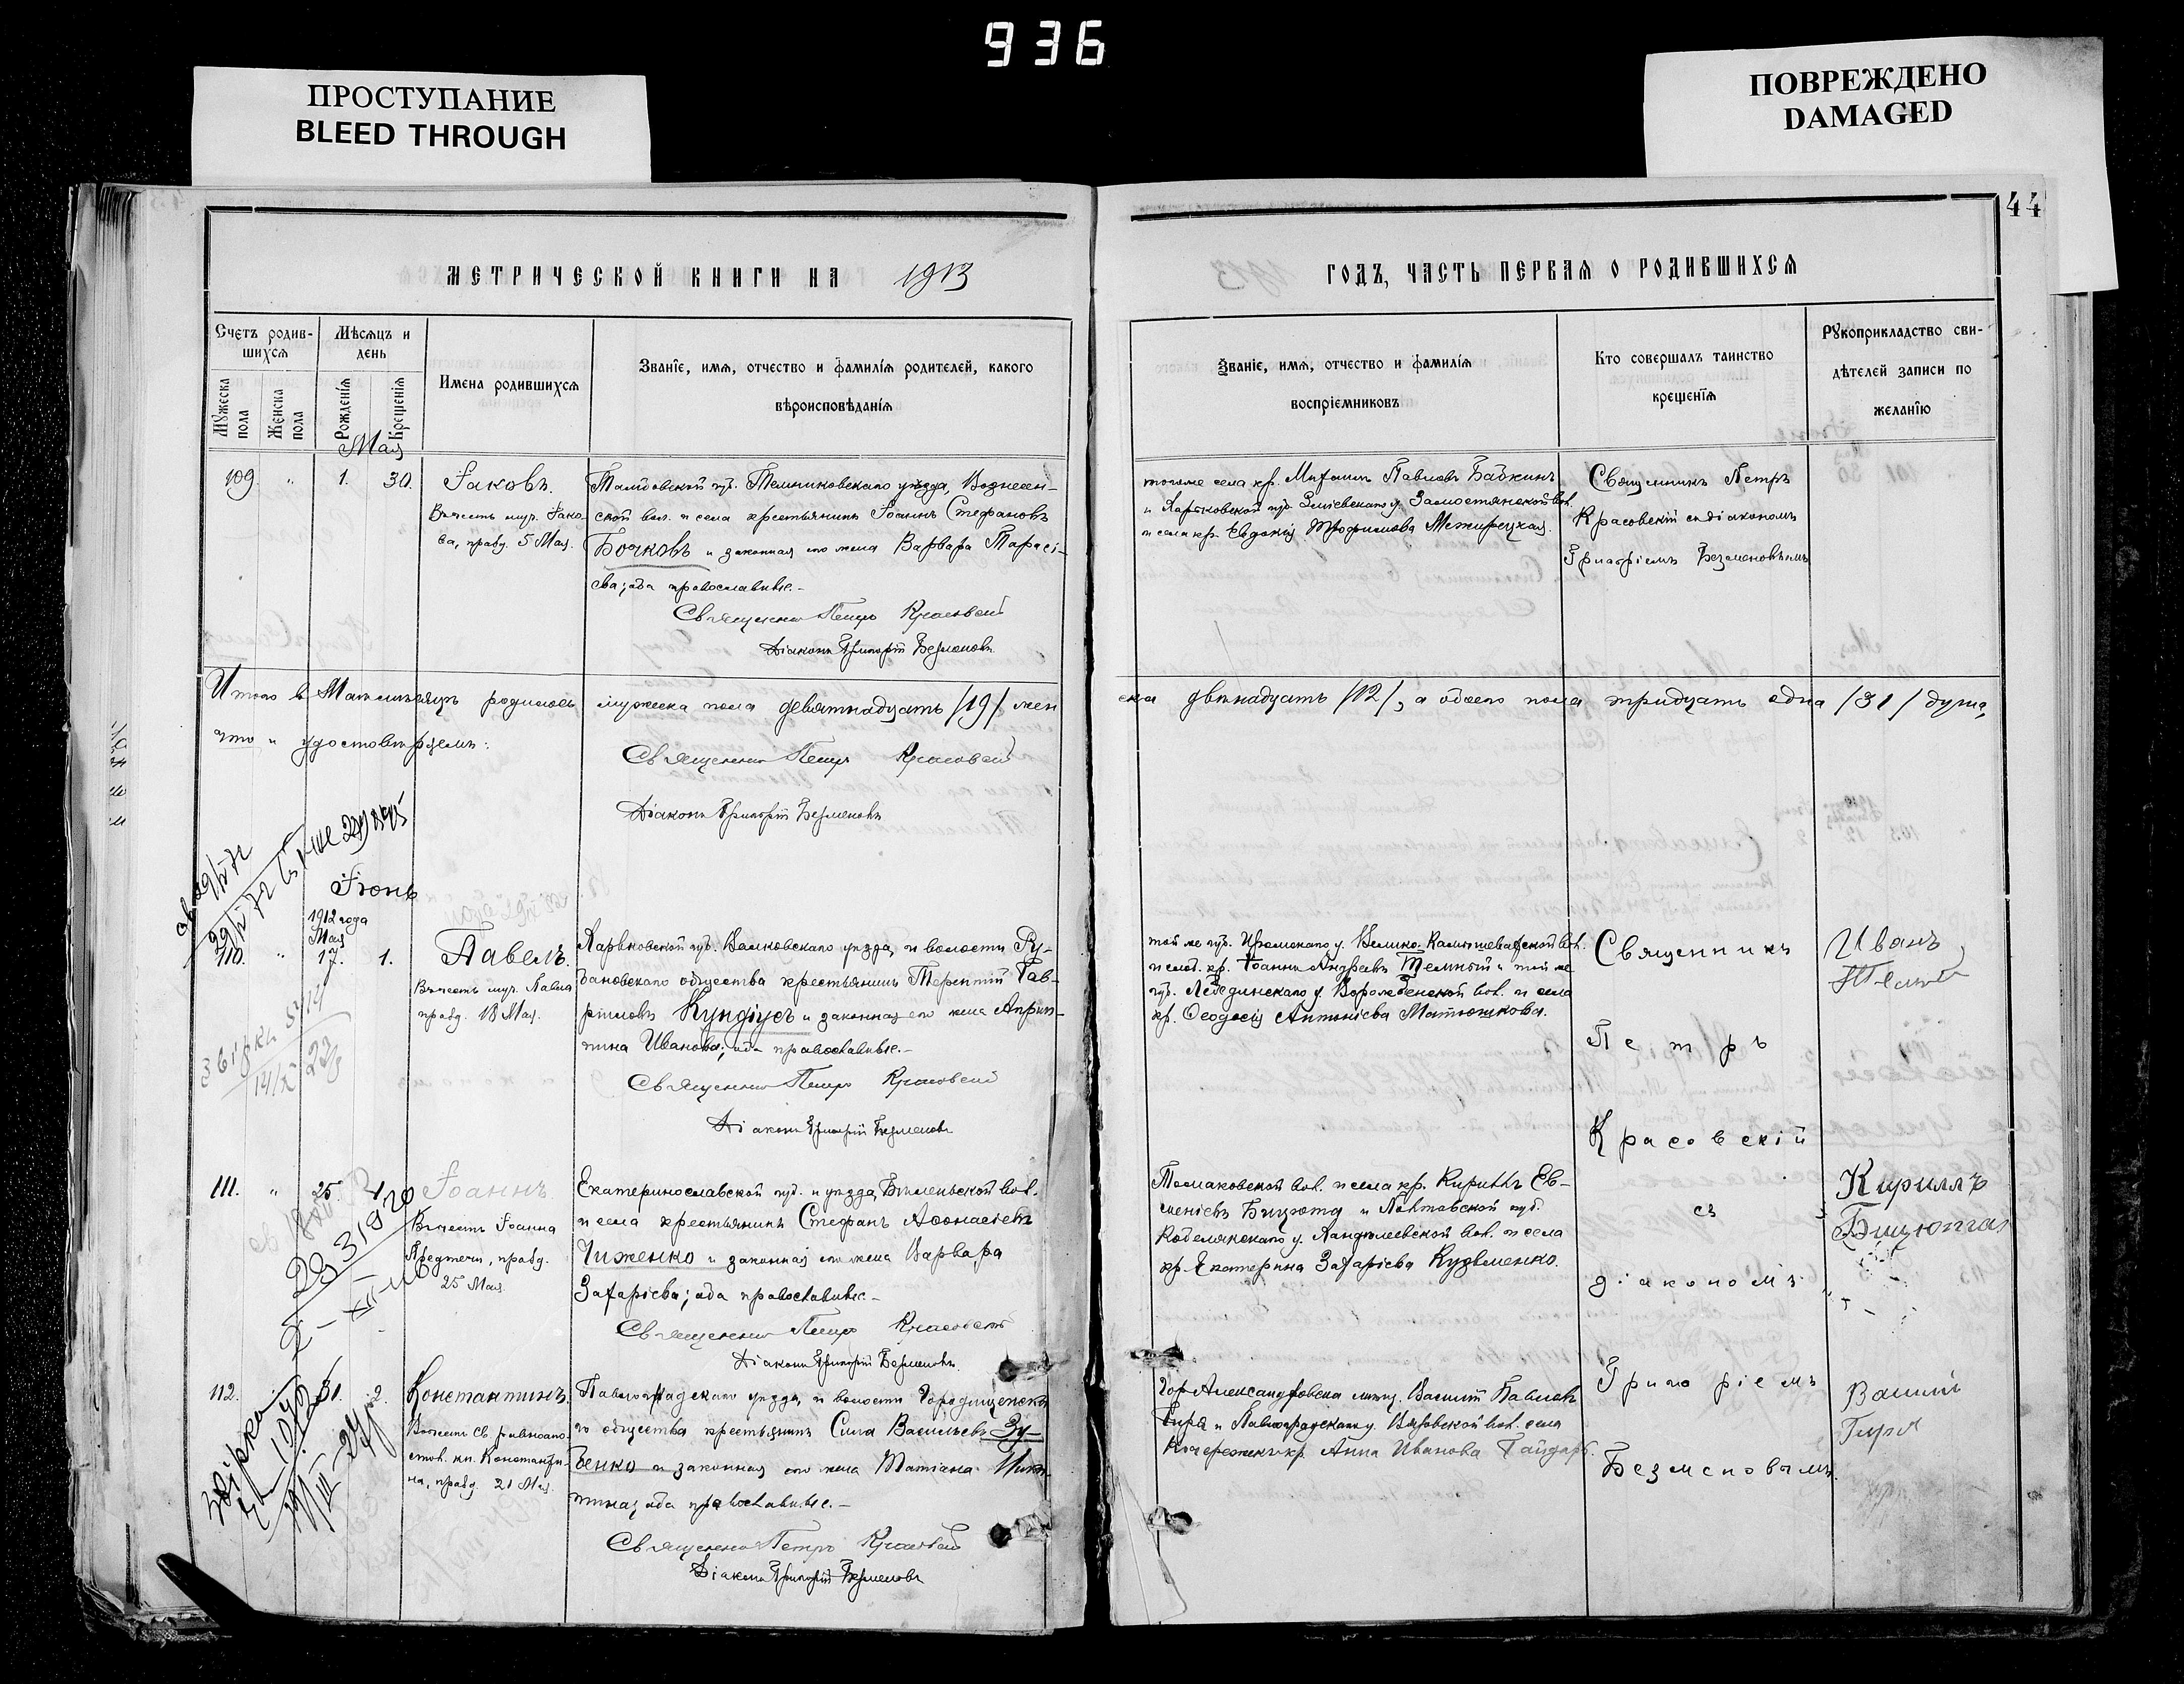 936
ПРОСТУПАНИЕ
BLEED THROUGH
ПОВРЕЖДЕНО
DAMAGED
44
МЕТРИЧЕСКОЙ КНИГИ НА 1913
ГОДЪ, ЧАСТЬ ПЕРВАЯ О РОДИВШИХСЯ
Счетъ родив-
шихся
Мѣсяцъ и
день
Имена родившихся
Званіе, имя, отчество и фамилія родителей, какого
вѣроисповѣданія
Мужеска
пола
Женска
пола
Рожденія
Крещенія
Званіе, имя, отчество и фамилія
воспріемниковъ
Кто совершалъ таинство
крещенія
Рукоприкладство сви-
дѣтелей записи по
желанію
Мая
109. " 1. 30. Іаковъ.
Въ честь муч. Іако-
ва, празд. 5 Мая.
Тамбовской губ. Темниковскаго уѣзда, Вознесен-
ской вол. и села крестьянинъ Іоаннъ Стефановъ
Бочковъ и законная его жена Варвара Тарасі-
ева; оба православные.-
Священникъ Петръ Красовскій
Діаконъ Григорій Безменовъ
тогоже села кр. Михаилъ Павловъ Бабкинъ
и Харьковской губ. Зміевскаго у. Замостянской вол.
и села кр. Евдокія Трофимова Межирецкая.
Священникъ Петръ
Красовскій съ діакономъ
Григоріемъ Безменовымъ
Итого въ Маѣ мѣсяцѣ родилось мужеска пола девятнадцать /19/ жен
ска двѣнадцать /12/, а обоего пола тридцать одна /31/ душа,
что и удостовѣряемъ:
Священникъ Петръ Красовскій
Діаконъ Григорій Безменовъ
Іюнь
1912 года
Мая
110. " 17. 1. Павелъ.
Въ честь муч. Павла
празд. 18 Мая.
Харьковской губ. Валковскаго уѣзда, и волости Гу-
бановскаго общества крестьянинъ Терентій Гав-
ріиловъ Кундіусъ и законная его жена Агрип-
пина Иванова; оба православные.-
Священникъ Петръ Красовскій
Діаконъ Григорій Безменовъ
той же губ. Изюмскаго у. Велико-Камышевахской вол.
и слоб. кр. Іоаннъ Андреевъ Темный и той же
губ. Лебединскаго у. Ворожбенской вол. и села
кр. Ѳеодосія Антоніева Матюшкова.
Священникъ
Петръ
Красовскій
съ
діакономъ
Григоріемъ
Безменовымъ.
Иванъ
Темный
111. " 25. Іоаннъ
Въ честь Іоанна
Предтечи, празд.
25 Мая.
Екатеринославской губ. и уѣзда,
и села крестьянинъ Стефанъ Аѳонасіевъ
Чиженко и законная его жена Варвара
Захаріева; оба православные.-
Священникъ Петръ Красовскій
Діаконъ Григорій Безменовъ
Томаковской вол. и села кр. Кириллъ Ев-
меніевъ Бицюта и Полтавской губ.
Кобелякскаго у. вол. и села
кр. Екатерина Захаріева Кузьменко.
Кириллъ
Бицюта
112. 31. 2. Константинъ.
Въ честь св. равноапо-
стол. кн. Константи-
на, празд. 21 Мая.
Павлоградскаго уѣзда, и волости Городищенска
го общества крестьянинъ Сила Васильевъ Зу-
бенко и законная его жена Татіана Ники-
тина; оба православные.-
Священникъ Петръ Красовскій
Діаконъ Григорій Безменовъ
Гор Александровска мѣщ. Василій Павловъ
Гиря и Павлоградскаго у. Вязовской вол. села
Кочережекъ кр. Анна Иванова Гайдаръ.
Василій
Гиря